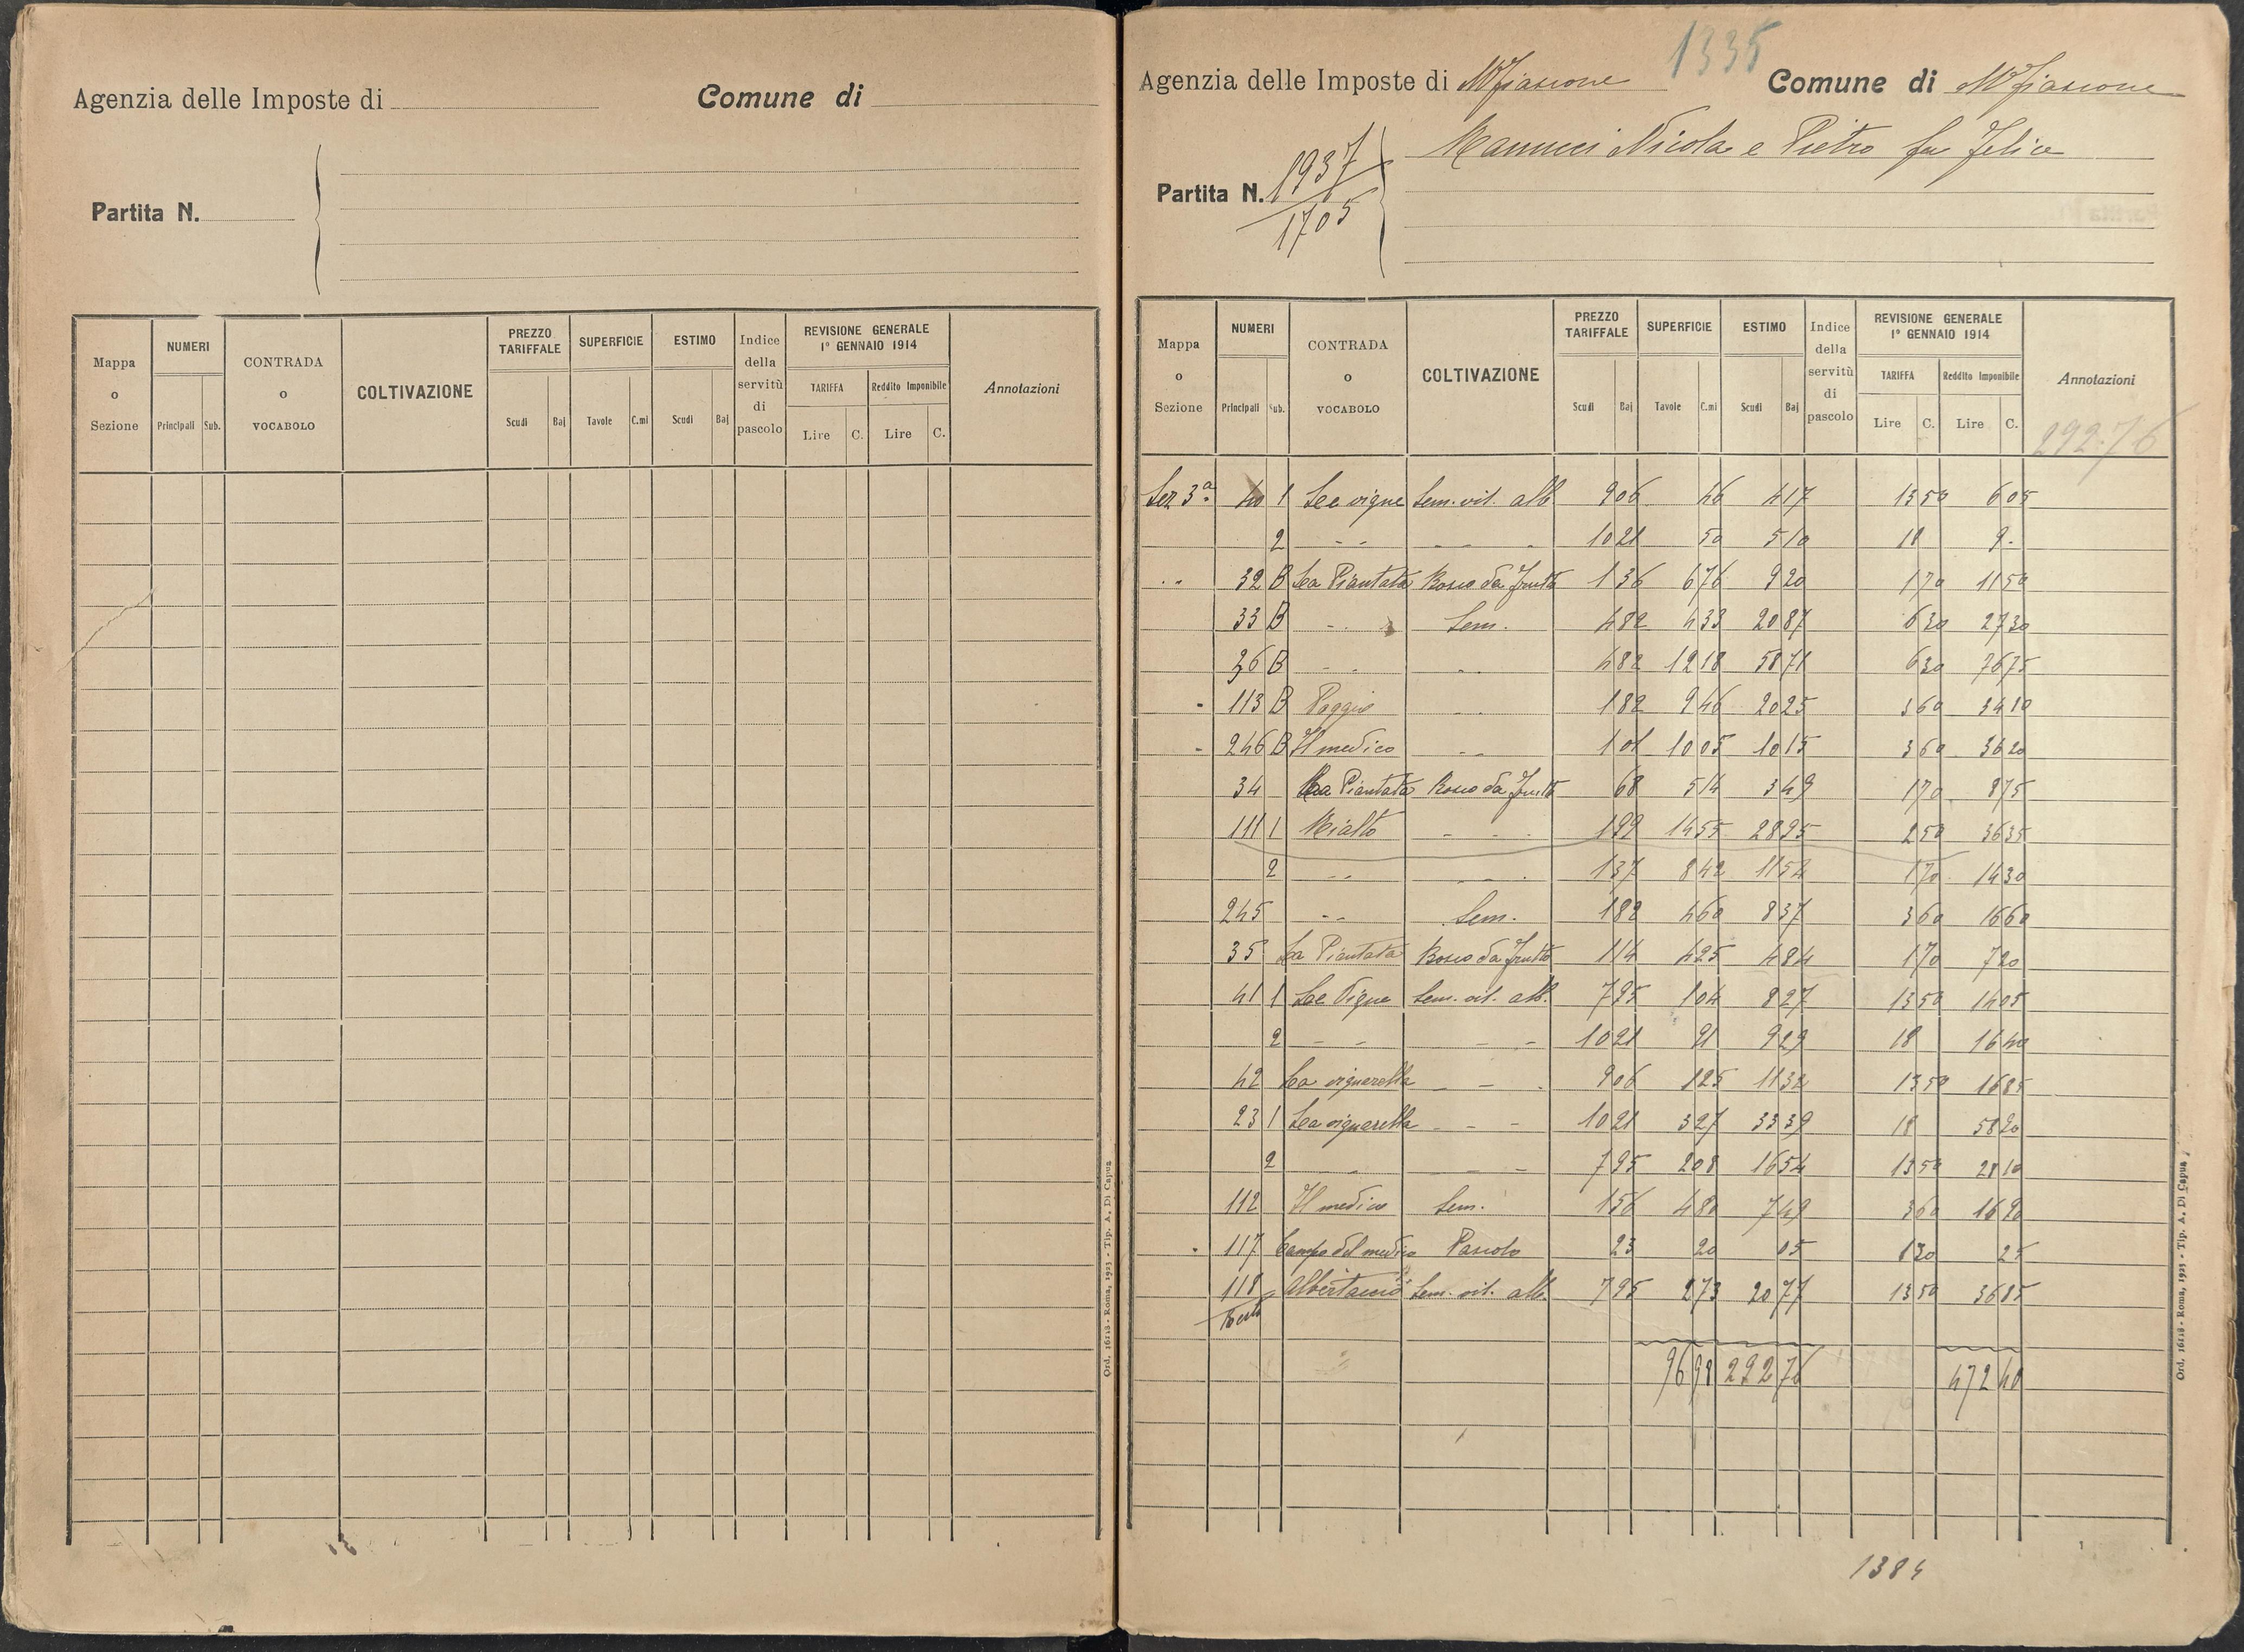 Agenzia delle Imposte di
Comune di
Partita N.
Mappa o Sezione
NUMERI
Principali
Sub.
CONTRADA o VOCABOLO
COLTIVAZIONE
PREZZO TARIFFALE
Scudi
Baj
SUPERFICIE
Tavole
C.mi
ESTIMO
Scudi
Baj
Indice della servitù di pascolo
REVISIONE GENERALE
1° GENNAIO 1914
TARIFFA
Reddito Imponibile
Lire
C.
Lire
C.
Annotazioni
Ord. 16118 - Roma, 1923 - Tip. A. Di Capua
1335
Agenzia delle Imposte di Mfiascone
Comune di Mfiascone
Partita N. 1937
1705
Manucci Nicola e Pietro fu Felice
Mappa o Sezione
NUMERI
Principali
Sub.
CONTRADA o VOCABOLO
COLTIVAZIONE
PREZZO TARIFFALE
Scudi
Baj
SUPERFICIE
Tavole
C.mi
ESTIMO
Scudi
Baj
Indice della servitù di pascolo
REVISIONE GENERALE
1° GENNAIO 1914
TARIFFA
Reddito Imponibile
Lire
C.
Lire
C.
Annotazioni
292.76
Sez 3a 40 1 Le vigne Sem. vit. alb. 9 06 46 4 17 13 50 6 05
2 - - - - - 10 21 50 5 10 18 9 -
32 B La Piantata Bosco da frutto 1 36 6 76 9 20 1 70 11 50
33 B - - Sem. 4 82 4 33 20 87 6 30 27 30
36 B - - - - 4 82 12 18 58 71 6 30 76 75
113 B Poggio - - 1 82 9 46 20 25 3 60 34 10
246 B Il medico - - 1 01 10 05 10 15 3 60 36 20
34 La Piantata Bosco da frutto 68 5 14 3 49 1 70 8 75
111 1 Rialto - - - 1 99 14 55 28 95 2 50 36 35
2 - - - - - 1 37 8 42 11 54 1 70 14 30
245 - - Sem. 1 82 4 60 8 37 3 60 16 60
35 La Piantata Bosco da frutto 1 14 4 25 4 84 1 70 7 20
41 1 Le Vigne Sem. vit. alb. 7 95 1 04 8 27 13 50 14 05
2 - - - - 10 21 91 9 29 18 16 40
42 La vignarella - - - 9 06 1 25 11 32 13 50 16 85
23 1 La vignarella - - - 10 21 3 27 33 39 18 58 20
2 - - - - 7 95 2 08 16 54 13 50 28 10
112 Il medico Sem. 1 56 4 80 7 49 3 60 16 90
117 Campo del medico Pascolo 23 20 05 1 30 25
118 Albertaccio Sem. vit. alb. 7 95 2 73 20 77 13 50 36 85
96 98 292 76 472 40
1384
Ord. 16118 - Roma, 1923 - Tip. A. Di Capua